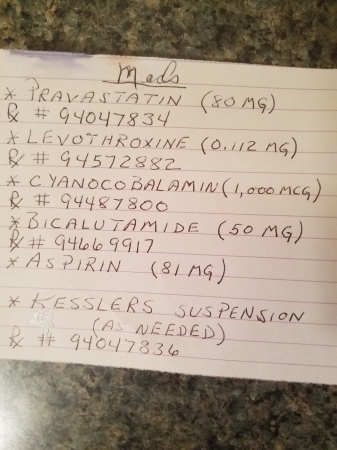 Meds
* PRAVASTATIN (80 MG)
℞ # 94047834
* LEVOTHROXINE (0.112 MG)
℞ # 94572882
* CYANOCOBALAMIN (1,000 MCG)
℞ # 94487800
* BICALUTAMIDE (50 MG)
℞ # 94669917
* ASPIRIN (81 MG)
* KESSLERS SUSPENSION
(AS NEEDED)
℞ # 94047836